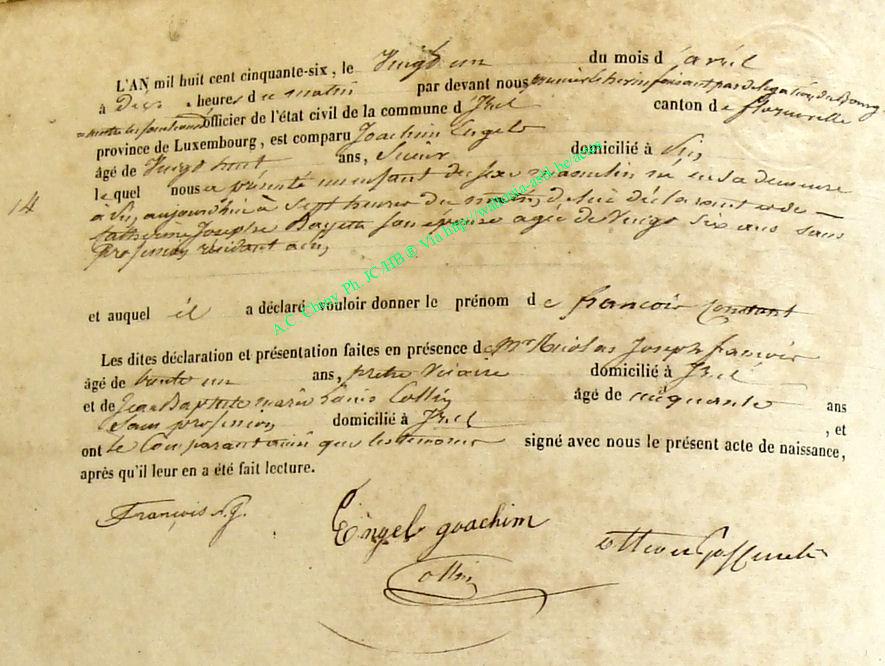 L'AN mil huit cent cinquante-six, le Vingt un du mois d'avril
à dix heures du matin par devant nous premier Echevin faisant par délégation du Bourg
officier de l'état civil de la commune d'Izel canton de florenville
province de Luxembourg, est comparu Joachim Engels
âgé de Vingt huit ans, domicilié à
14
lequel nous a présenté un enfant du sexe masculin né en sa demeure
aujourd'hui à Sept heures du matin, de lui déclarant et de
Catherine Josephe son épouse agée de Vingt Six ans sans
profession résidant
et auquel il a déclaré vouloir donner le prénom de francois Constant
Les dites déclaration et présentation faites en présence de Mr Nicolas Joseph francois
âgé de trente un ans, prêtre Vicaire domicilié à Izel
et de Jean Baptiste marie Louis Collin âgé de cinquante ans
Sans profession domicilié à Izel, et
ont le Comparant ainsi que les témoins signé avec nous le présent acte de naissance,
après qu'il leur en a été fait lecture.
François N.J.
Engels goachim
Collin
A.C. Chiny Ph. JC/HB ® Via http://wallonia-asbl.be/actes